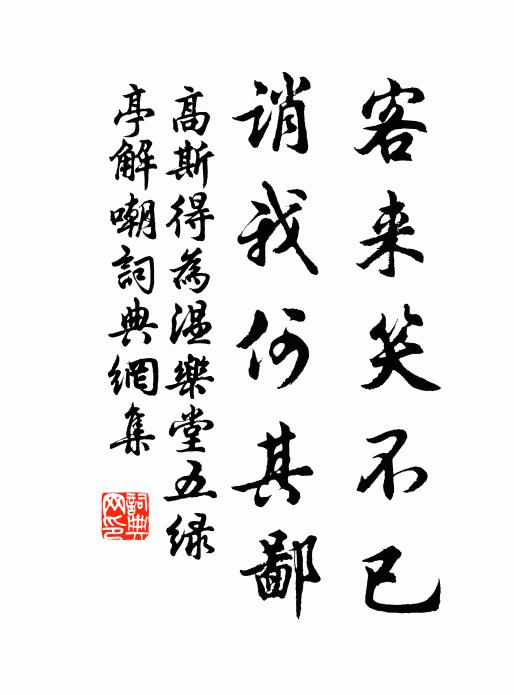 客来笑不已
誚我何其鄙
高斯得為湿樂堂五绿
亭解嘲詞典網集
詞典
网印